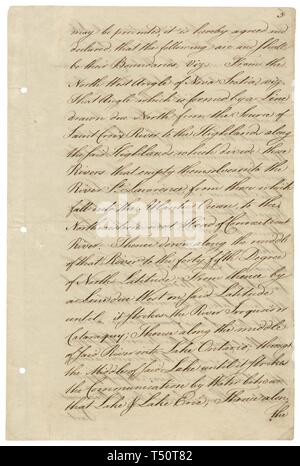 3
may be prevented, it is hereby agreed and
declared that the following are and shall
be their Boundaries, viz. From the
North West Angle of Nova Scotia, viz.
That Angle which is formed by a Line
drawn due North from the Source of
Saint Croix River to the Highlands along
the said Highlands which divide those
Rivers that empty themselves into the
River St. Lawrence, from those which
fall into the Atlantic Ocean, to the
Northwestern-most Head of Connecticut
River; Thence down along the middle
of that River to the forty fifth Degree
of North Latitude; From thence by
a Line due West on said Latitude
until it strikes the River Iroquois or
Cataraquy; Thence along the middle
of said River into Lake Ontario; through
the Middle of said Lake until it strikes
the Communication by Water between
that Lake & Lake Erie; Thence along
the
alamy
T50T82